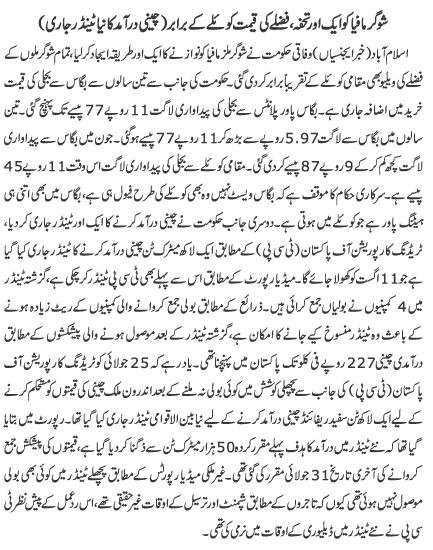 شوگر مافیا کو ایک اور تحفہ، فضلے کی قیمت کوئلے کے برابر (چینی درآمد کا نیا ٹینڈر جاری)
اسلام آباد (خبر ایجنسیاں) وفاقی حکومت نے شوگر ملز مافیا کو نوازنے کا ایک اور طریقہ ایجاد کر لیا، تمام شوگر ملوں کے
فضلے کی ویلیو بھی مقامی کوئلے کے تقریباً برابر کر دی گئی۔ حکومت کی جانب سے تین سالوں سے بگاس سے بجلی کی قیمت
خرید میں اضافہ جاری ہے۔ بگاس پاور پلانٹس سے بجلی کی پیداواری لاگت 11 روپے 77 پیسے تک پہنچ گئی۔ تین
سالوں میں بگاس سے لاگت 5.97 روپے سے بڑھ کر 11 روپے 77 پیسے ہوگئی۔ جون میں بگاس سے پیداواری
لاگت کچھ کم کر کے 9 روپے 87 پیسے کی گئی۔ مقامی کوئلے سے بجلی کی پیداواری لاگت اس وقت 11 روپے 45
پیسے ہے۔ سرکاری حکام کا موقف ہے کہ بگاس ویسٹ نہیں وہ بھی کوئلے کی طرح فیول ہی ہے، بگاس میں بھی اتنی ہی
ہیٹنگ پاور ہے جو کوئلے میں ہوتی ہے۔ دوسری جانب حکومت نے چینی درآمد کرنے کا ایک اور ٹینڈر جاری کر دیا،
ٹریڈنگ کارپوریشن آف پاکستان (ٹی سی پی) کے مطابق ایک لاکھ میٹرک ٹن چینی درآمد کرنے کا ٹینڈر جاری کیا گیا
ہے جو 11 اگست کو کھولا جائے گا۔ میڈیا رپورٹ کے مطابق اس سے پہلے بھی ٹی سی پی ٹینڈر کر چکی ہے، گزشتہ ٹینڈر
میں 4 کمپنیوں نے بولیاں جمع کرائی ہیں۔ ذرائع کے مطابق بولی جمع کروانے والی کمپنیوں کے ریٹ زیادہ ہونے
کے باعث وہ ٹینڈر منسوخ کیے جانے کا امکان ہے، گزشتہ ٹینڈر کے بعد موصول ہونے والی پیشکشوں کے مطابق
درآمدی چینی 227 روپے فی کلو تک پاکستان میں پہنچنا تھی۔ یاد رہے کہ 25 جولائی کو ٹریڈنگ کارپوریشن آف
پاکستان (ٹی سی پی) کی جانب سے پچھلی کوشش میں کوئی بولی نہ ملنے کے بعد اندرون ملک چینی کی قیمتوں کو مستحکم کرنے
کے لیے ایک لاکھ ٹن سفید ریفائنڈ چینی درآمد کرنے کے لیے نیا بین الاقوامی ٹینڈر جاری کیا گیا تھا۔ رپورٹ میں بتایا
گیا تھا کہ نئے ٹینڈر میں درآمد کا ہدف پہلے مقرر کردہ 50 ہزار میٹرک ٹن سے دگنا کر دیا گیا ہے، قیمتوں کی پیشکش جمع
کروانے کی آخری تاریخ 31 جولائی مقرر کی گئی تھی۔ غیر ملکی میڈیا رپورٹس کے مطابق پچھلے ٹینڈر میں کوئی بھی بولی
موصول نہیں ہوئی تھی کیوں کہ تاجروں کے مطابق شپمنٹ اور ترسیل کے اوقات غیر حقیقی تھے، اس ردعمل کے پیش نظر ٹی
سی پی نے نئے ٹینڈر میں ڈیلیوری کے اوقات میں نرمی کی تھی۔